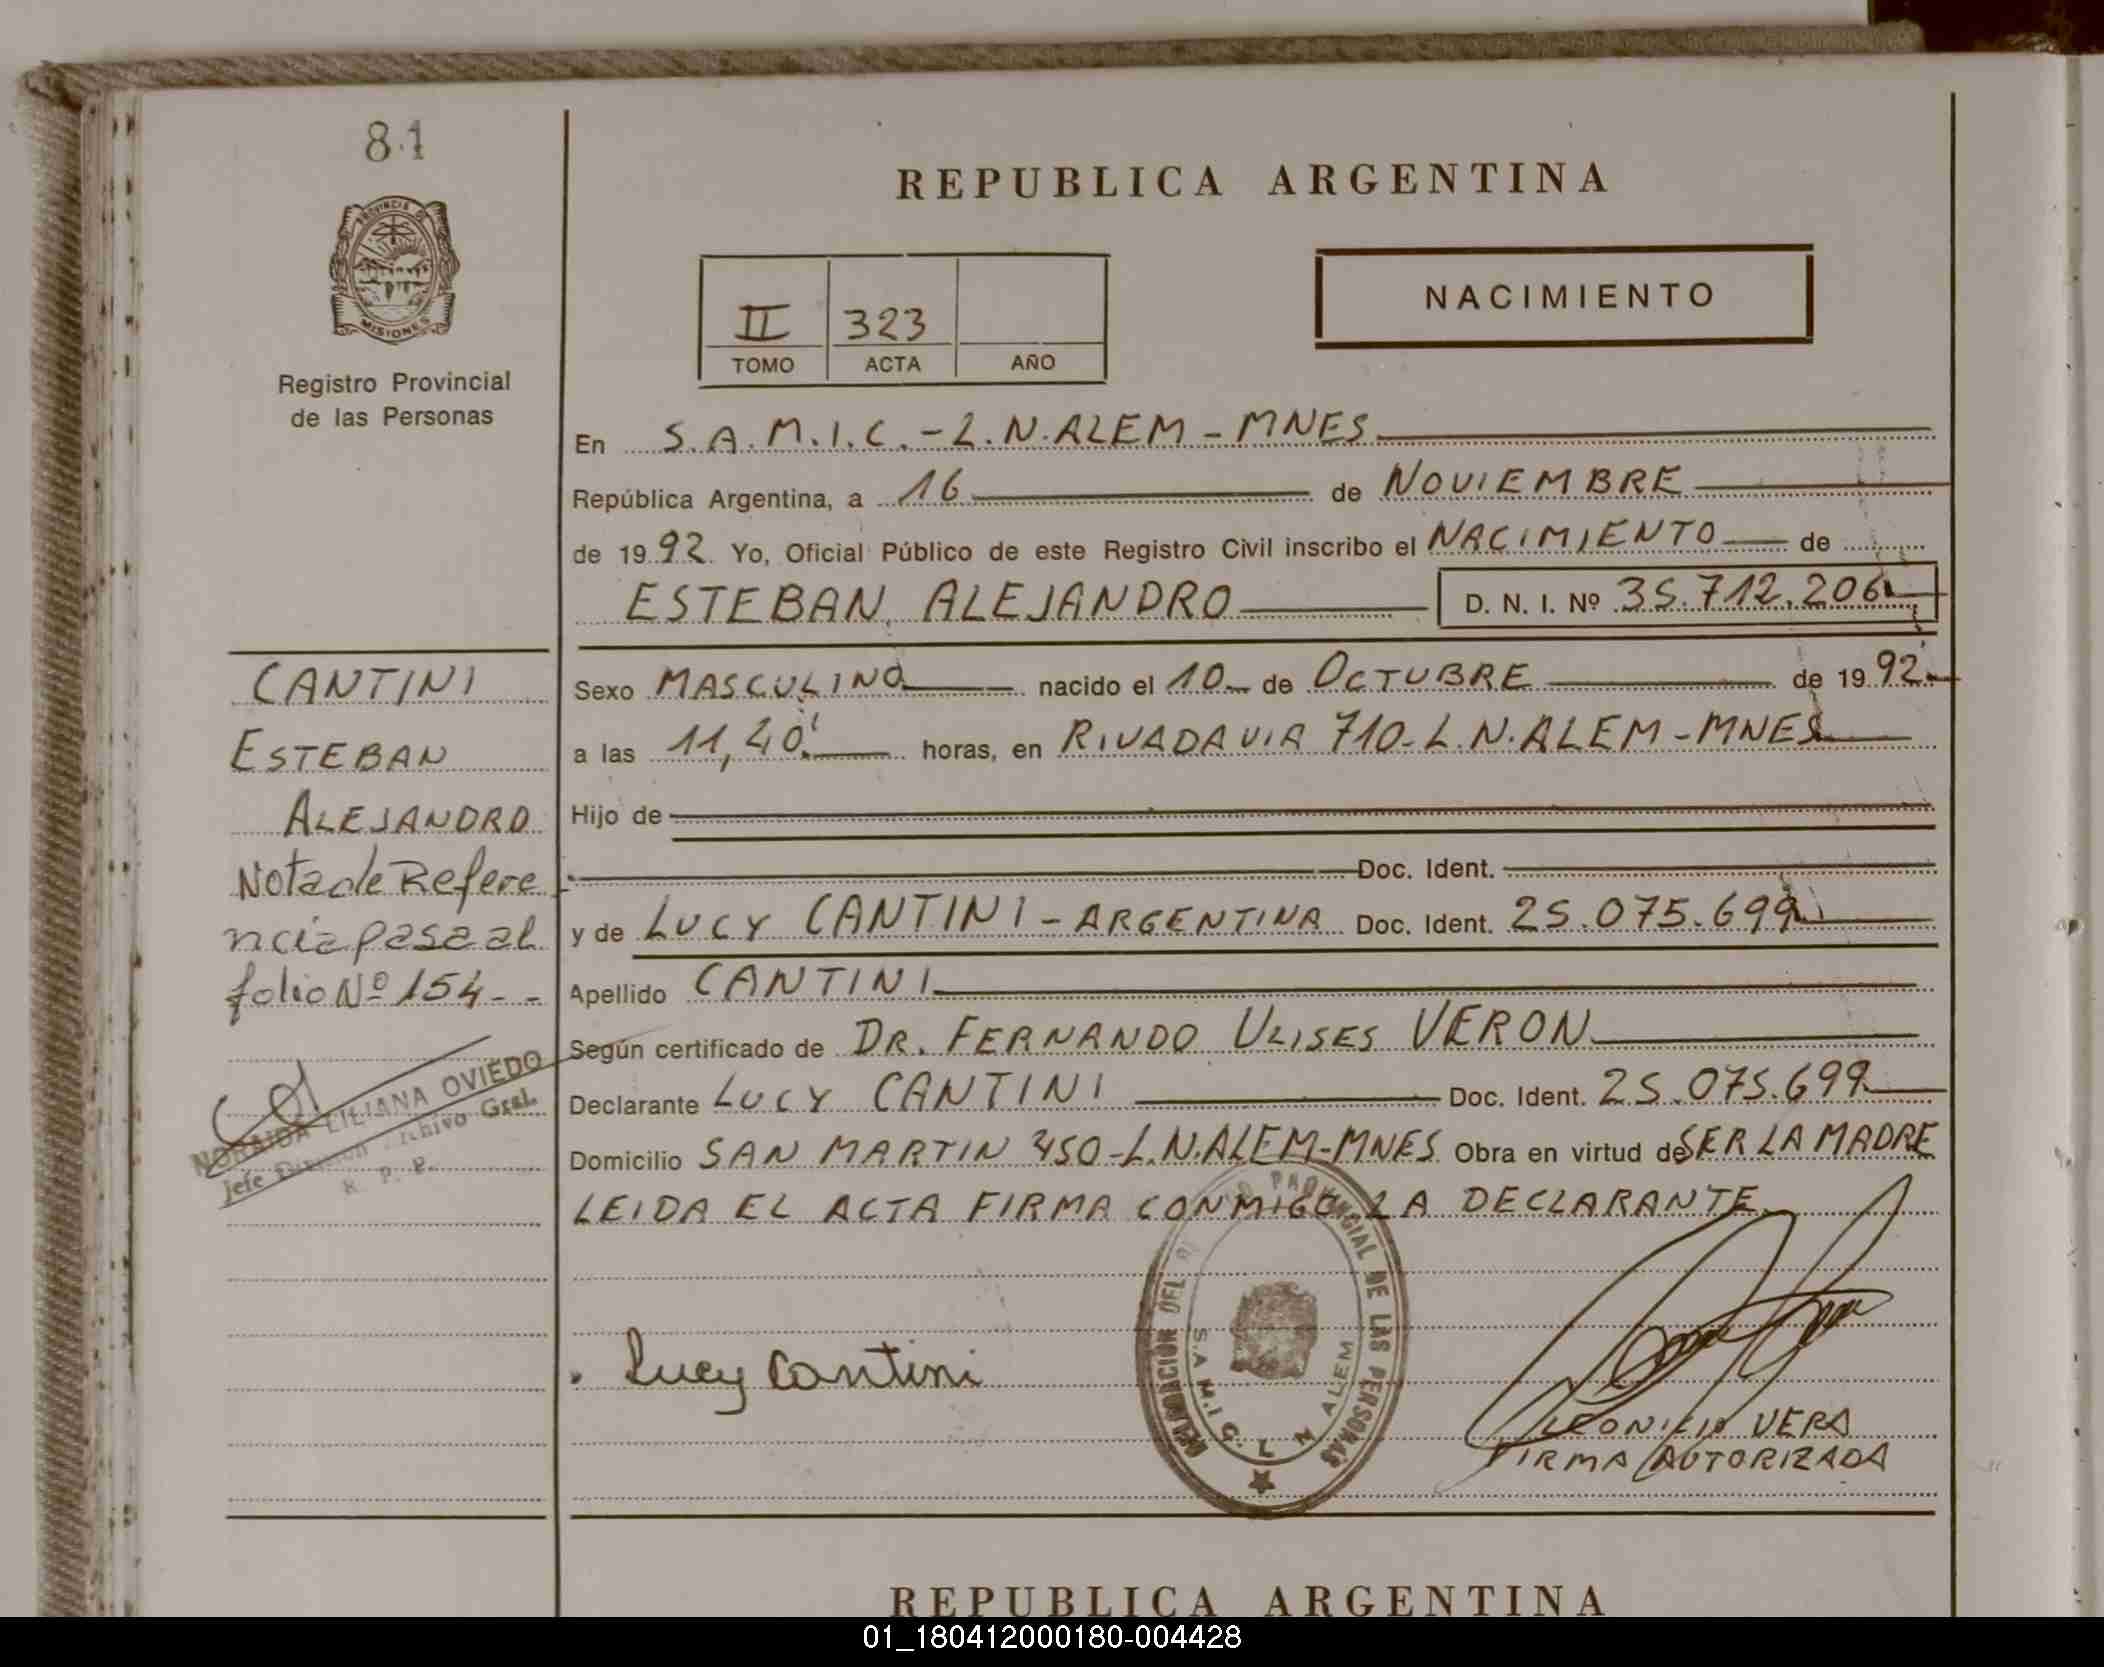 81
PROVINCIA DE
MISIONES
Registro Provincial
de las Personas
REPUBLICA ARGENTINA
II 323
TOMO ACTA AÑO
NACIMIENTO
En S.A.M.I.C.-L.N.ALEM-MNES
República Argentina, a 16 de NOVIEMBRE
de 1992 Yo, Oficial Público de este Registro Civil inscribo el NACIMIENTO de
ESTEBAN ALEJANDRO D. N. I. Nº 35.712.206
CANTINI
ESTEBAN
ALEJANDRO
Nota de Refere
ncia pasa al
folio Nº 154--
NORAIDA LILIANA OVIEDO
Jefe División Archivo Gral.
R. P. P.
Sexo MASCULINO nacido el 10 de OCTUBRE de 1992
a las 11,40' horas, en RIVADAVIA 710-L.N.ALEM-MNES
Hijo de
Doc. Ident.
y de LUCY CANTINI-ARGENTINA Doc. Ident. 25.075.699
Apellido CANTINI
Según certificado de DR. FERNANDO ULISES VERON
Declarante LUCY CANTINI Doc. Ident. 25.075.699
Domicilio SAN MARTIN 450-L.N.ALEM-MNES Obra en virtud de SER LA MADRE
LEIDA EL ACTA FIRMA CONMIGO LA DECLARANTE.
Lucy Cantini
PROVINCIAL DE LAS PERSONAS
S.A.M.I.C. L N ALEM
VERA
FIRMA AUTORIZADA
REPUBLICA ARGENTINA
01_180412000180-004428